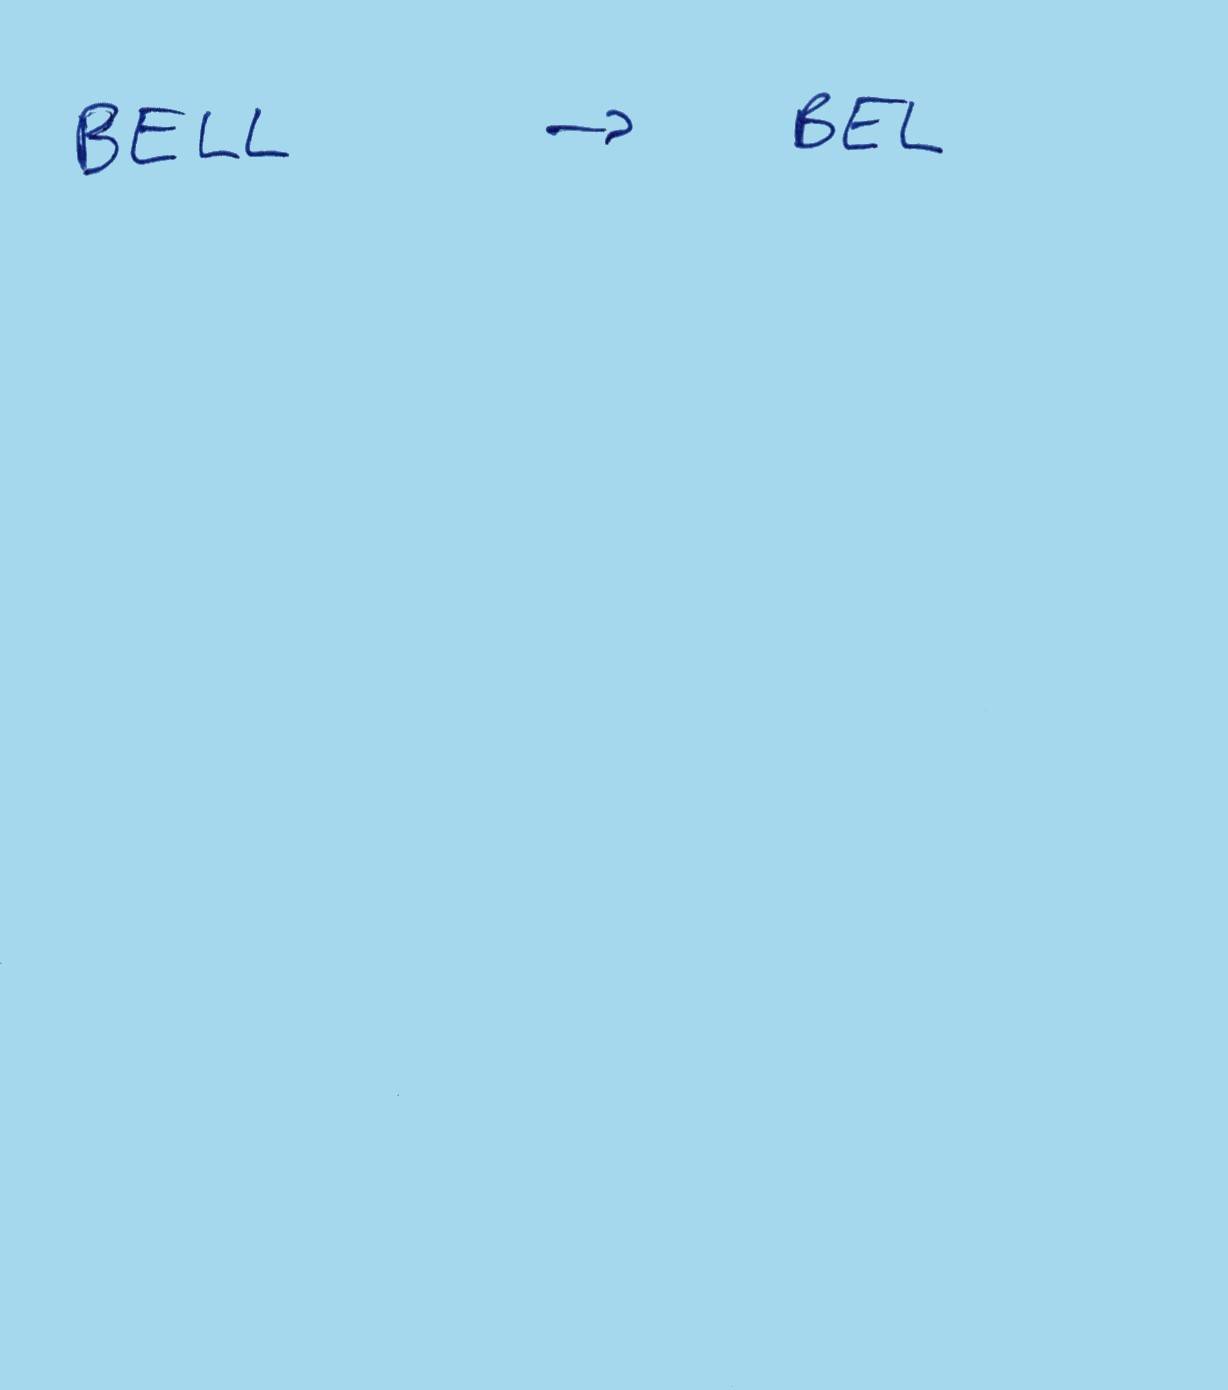 BELL → BEL